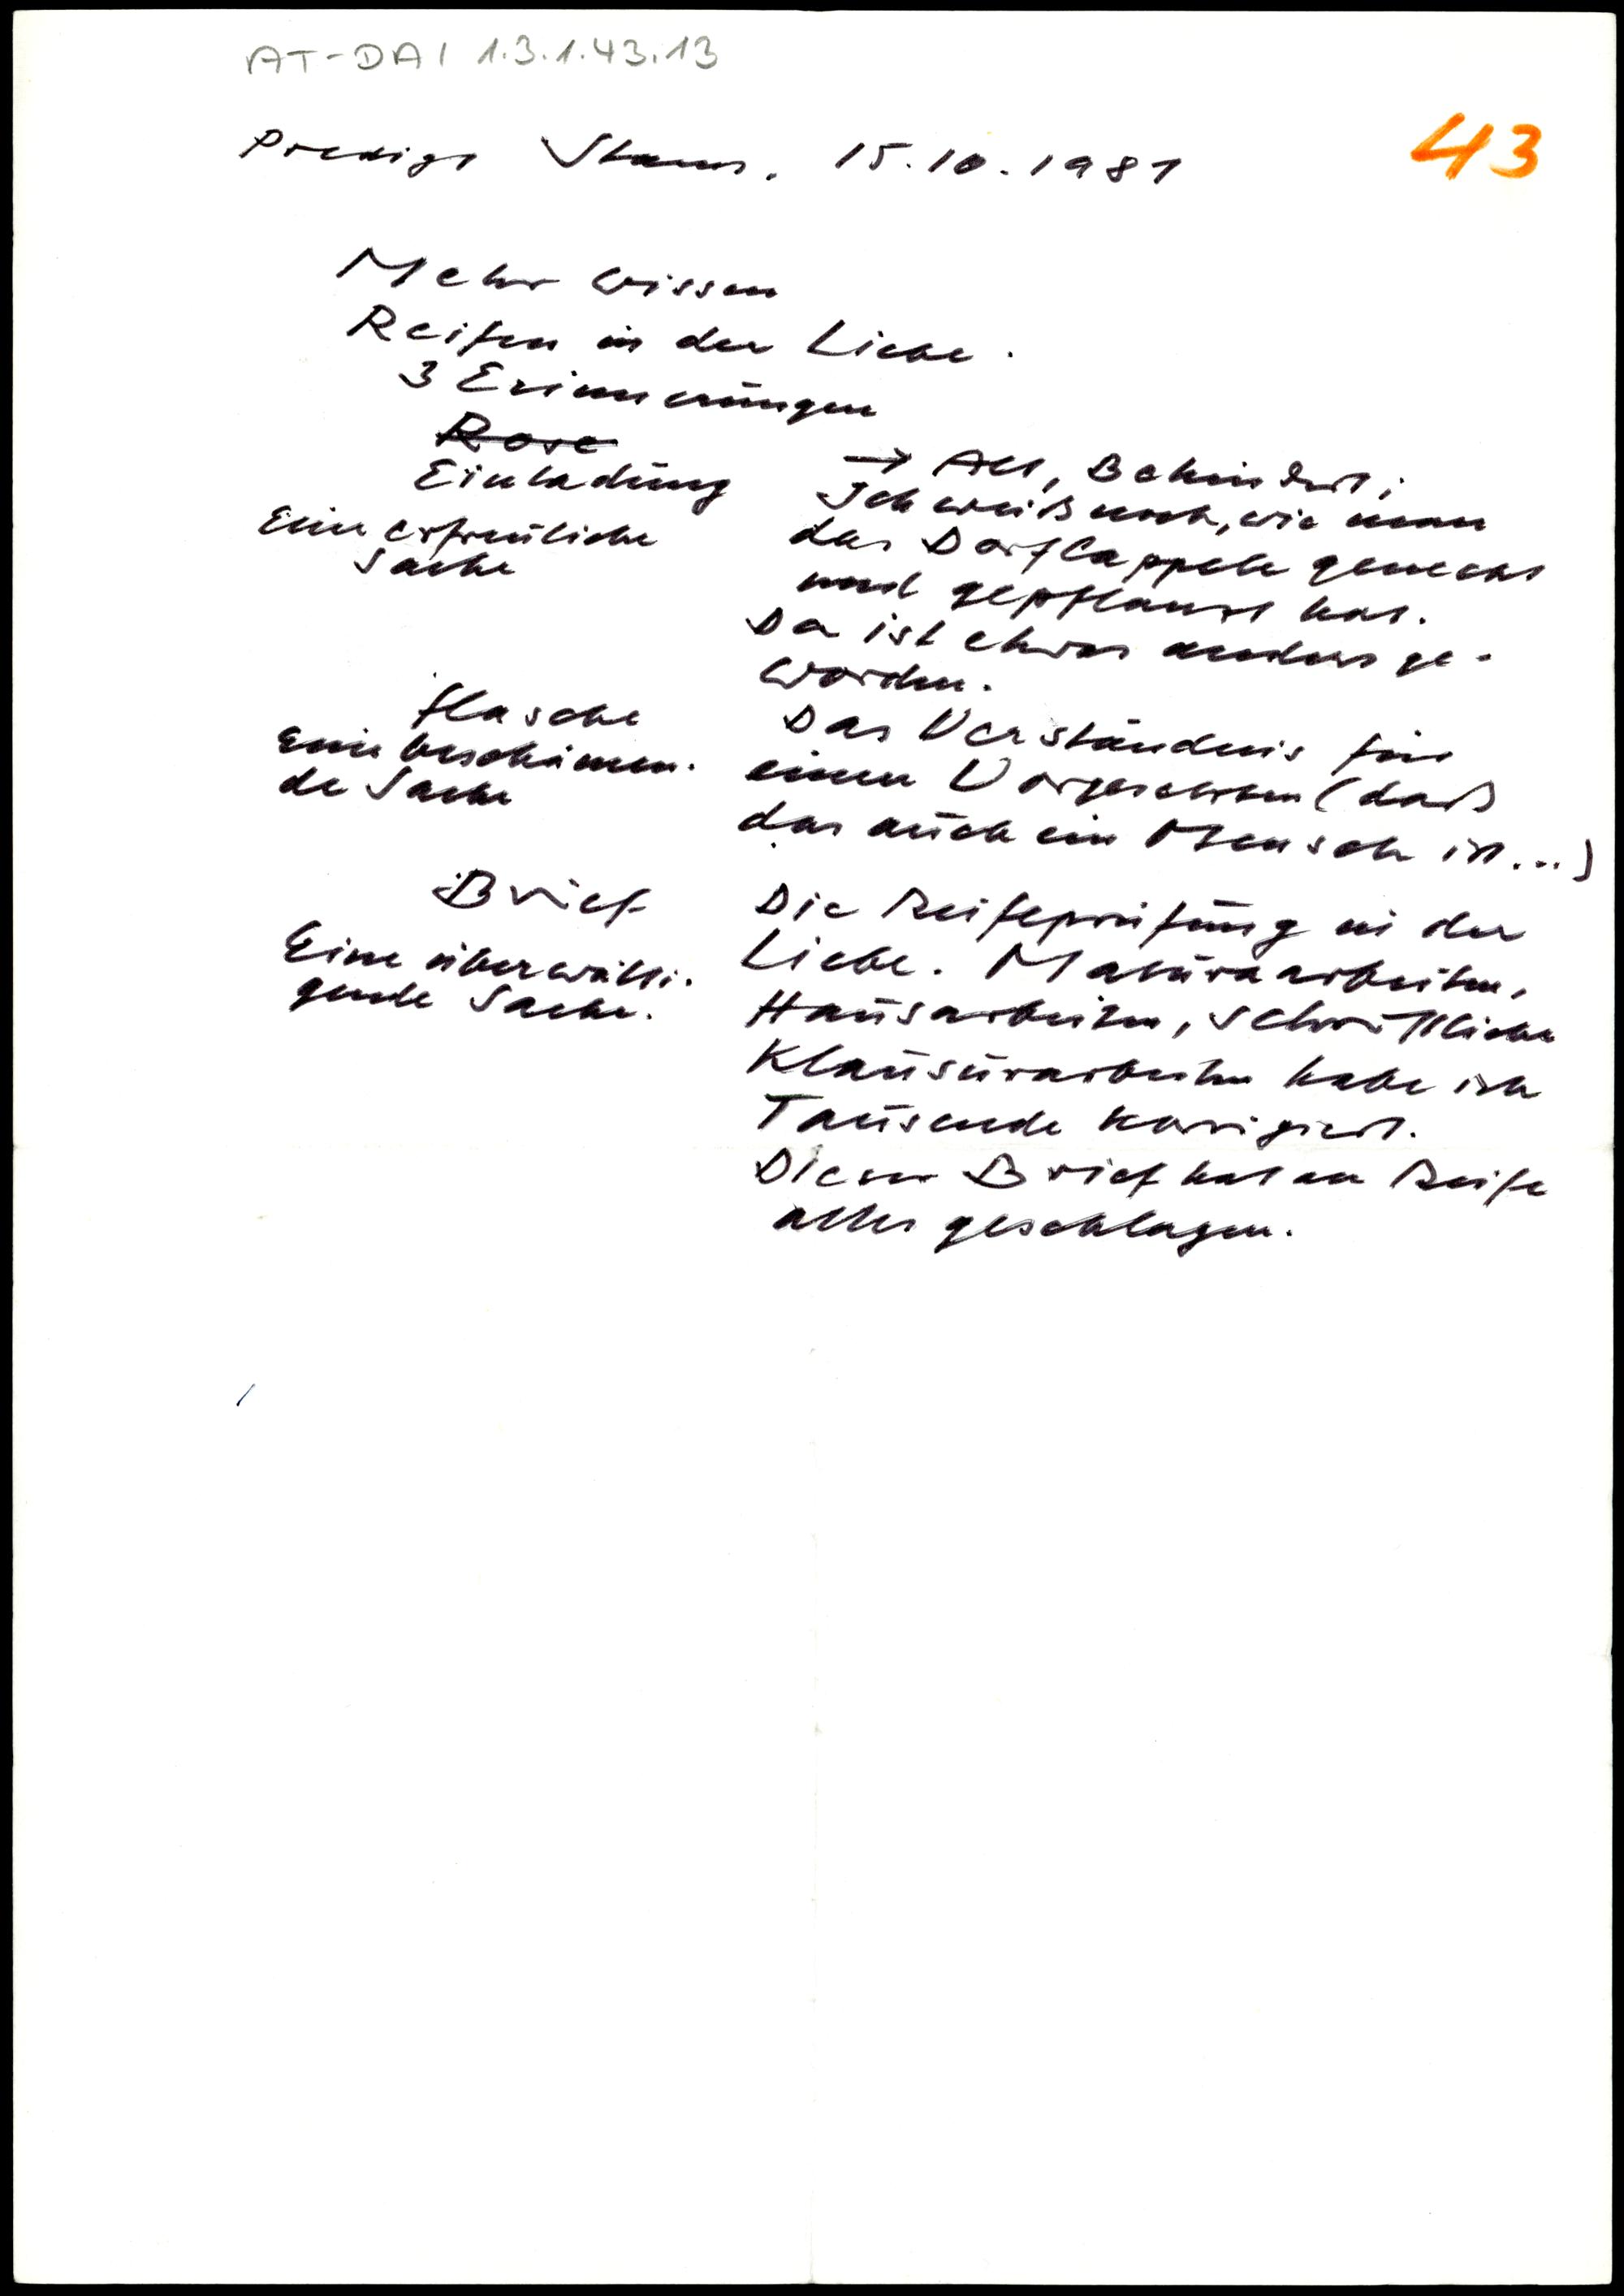 AT-DAI 1.3.1.43.13
43
Predigt Stams, 15.10.1981
Mehr Wissen
Reifen in der Liebe.
3 Erinnerungen
Rose
Einladung
Eine erfreuliche
Sache
→ Alt, Behindert;
Ich weiß noch, wie man
das Dorflappele geneckt
und gepflanzt hat.
Da ist etwas anders ge-
worden.
Flasche
Eine beschämen-
de Sache
Das Verständnis für
einen Vorgesetzten (daß
das auch ein Mensch ist...)
Brief
Eine überwälti-
gende Sache.
Die Reifeprüfung in der
Liebe. Maturaarbeiten,
Hausarbeiten, schriftliche
Klausurarbeiten habe ich
Tausende korrigiert.
Dieser Brief hat an Reife
alles geschlagen.